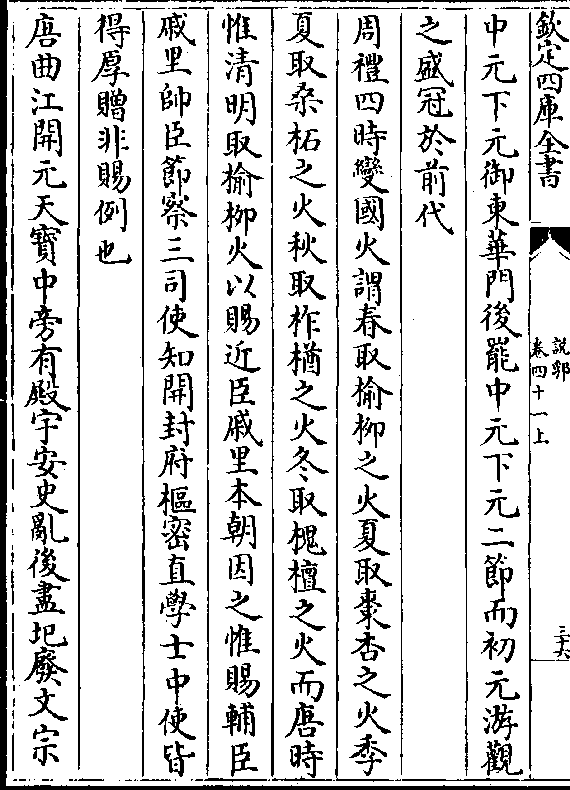 欽定四庫全書
說郛
卷四十一上
三十六
中元下元御東華門後罷中元下元二節而初元游觀
之盛冠於前代
周禮四時變國火謂春取榆柳之火夏取棗杏之火季
夏取桑柘之火秋取柞楢之火冬取槐檀之火而唐時
惟清明取榆柳火以賜近臣戚里本朝因之惟賜輔臣
戚里帥臣節察三司使知開封府樞密直學士中使皆
得厚贈非賜例也
唐曲江開元天寶中旁有殿宇安史亂後盡圯廢文宗